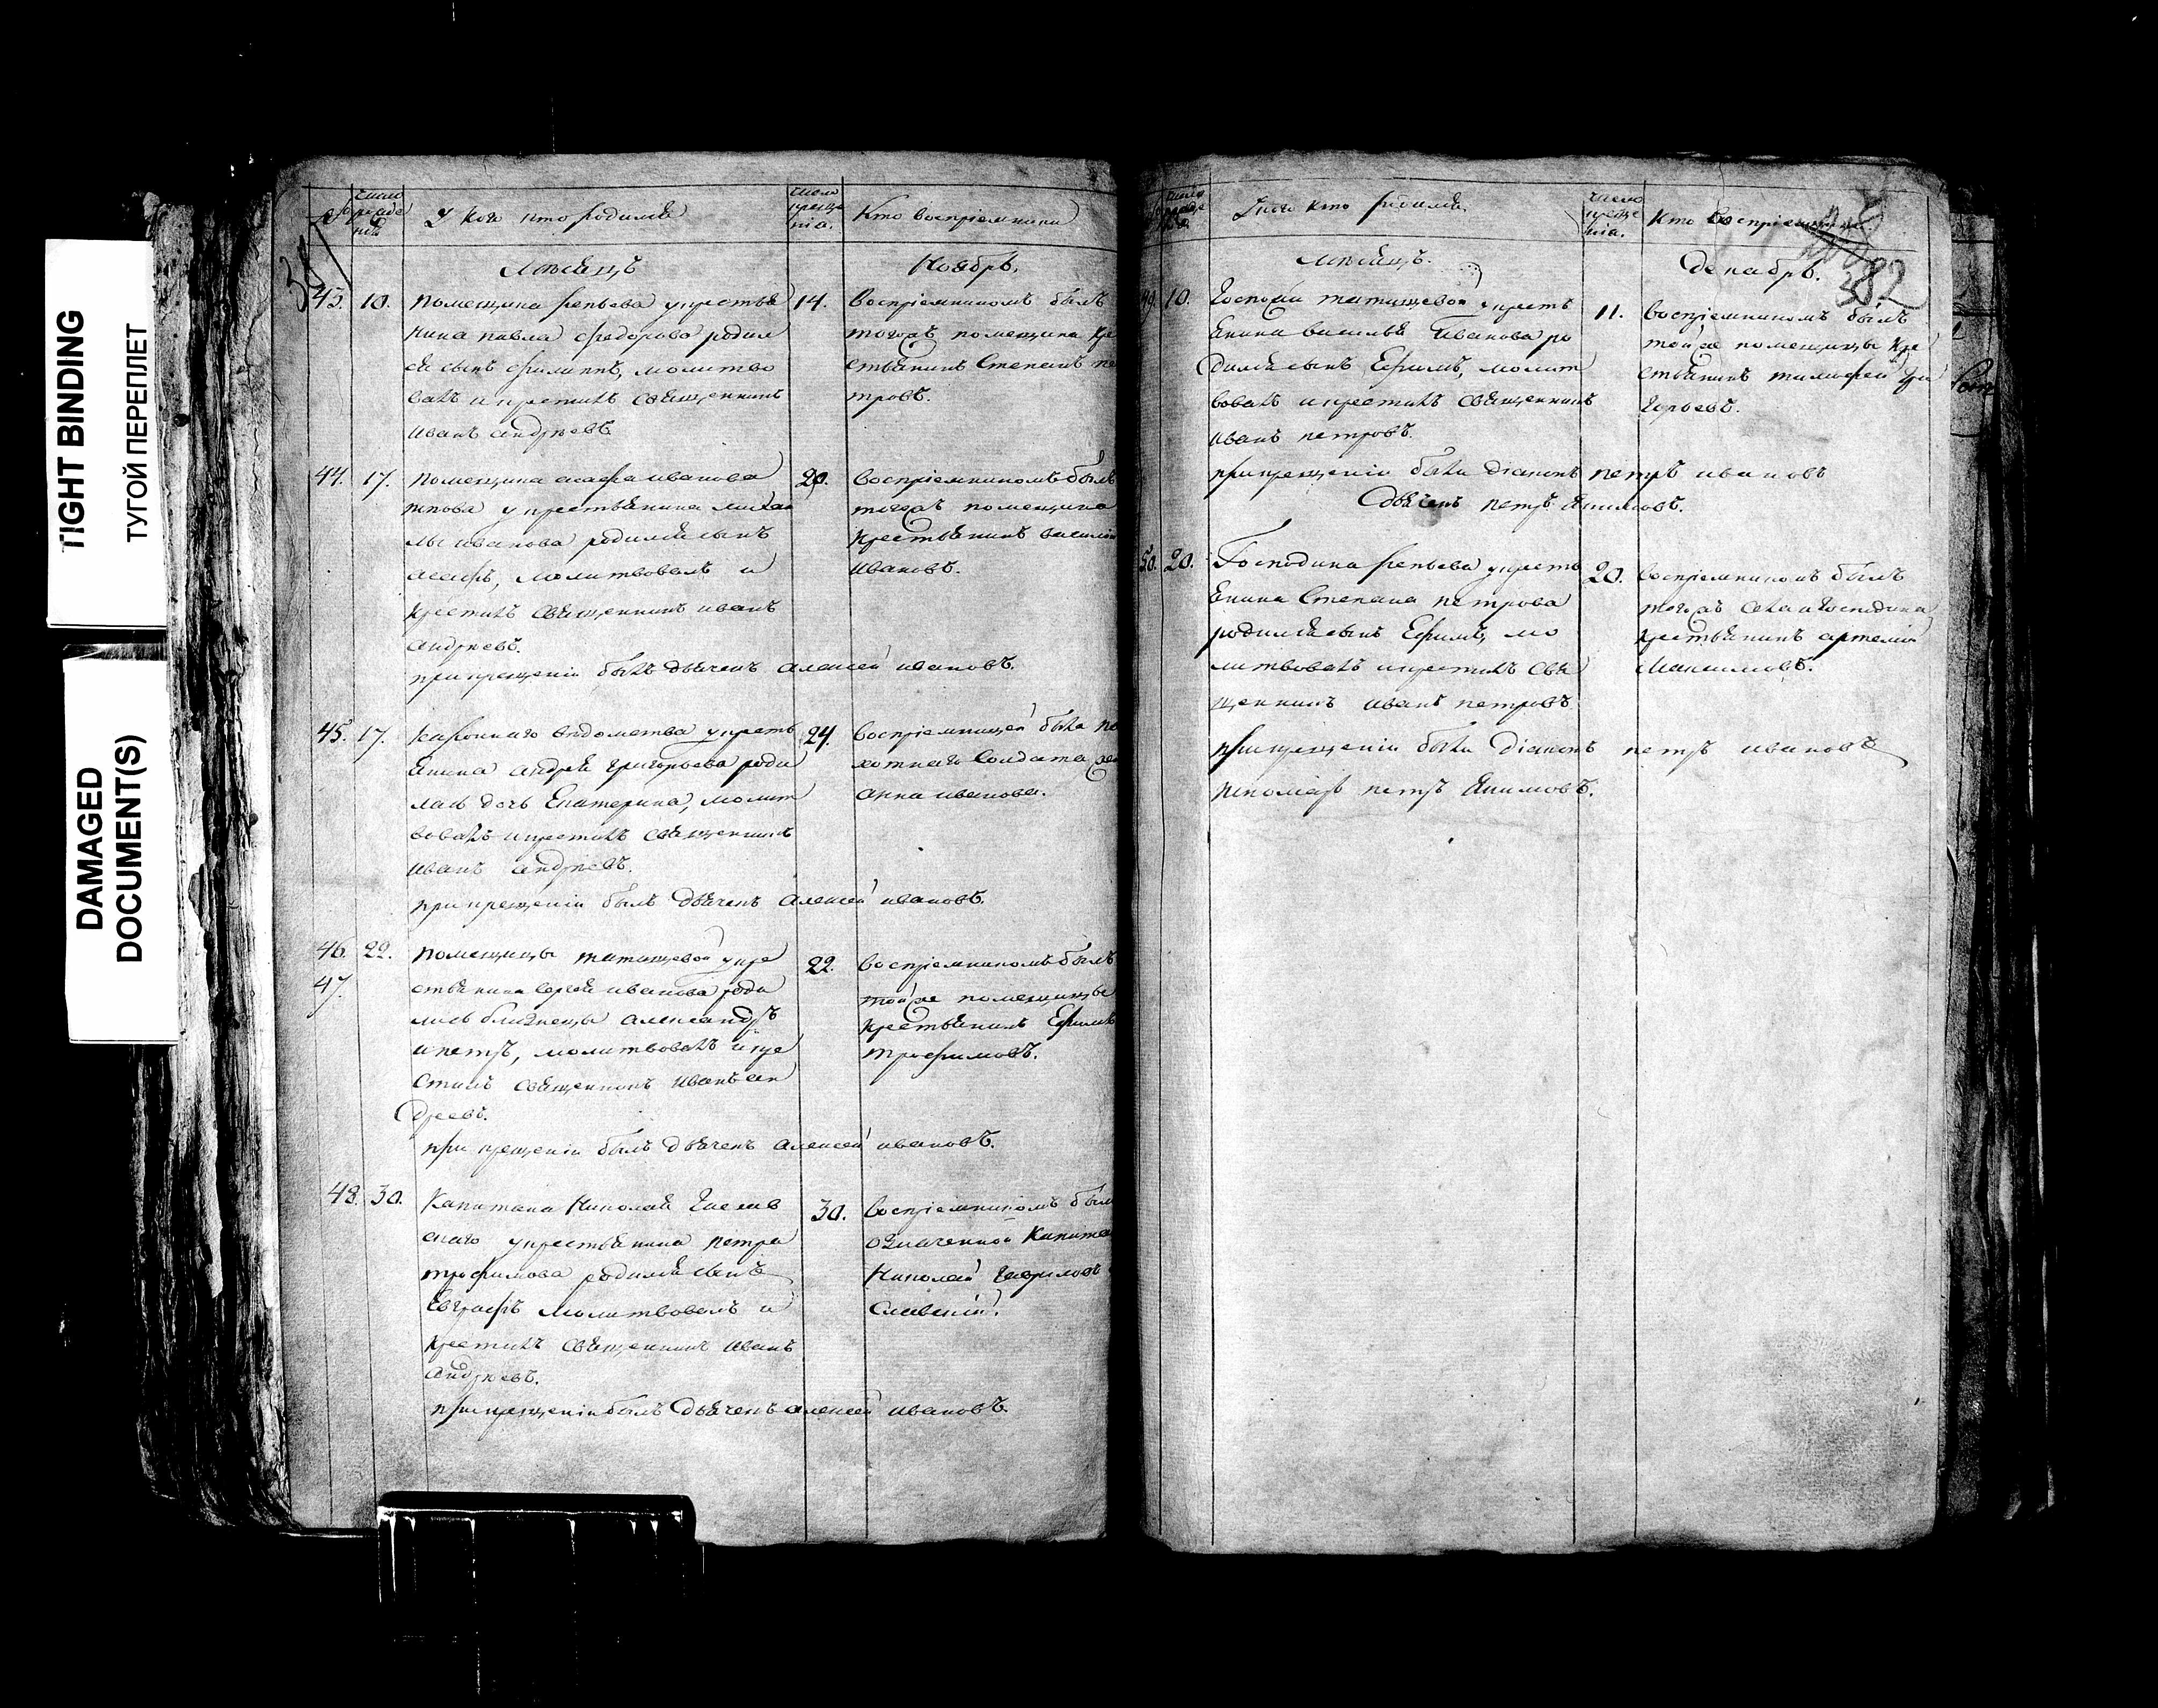 TIGHT BINDING
ТУГОЙ ПЕРЕПЛЕТ
DAMAGED
DOCUMENT(S)
У кого кто родился
число
креще
нія.
Кто воспріемники
Мѣсяцъ
Ноябрь.
43. 10.
помещика репьева у крестья
нина павла федорова родил
ся сынъ филиппъ, молитво
валъ и крестилъ священникъ
иванъ андреевъ
14.
воспріемникомъ былъ
тогожъ помещика кре
стьянинъ Степанъ пе
тровъ.
44. 17.
помещика иванова
у крестьянина
иванова родился сынъ
молитвовалъ и
крестилъ священникъ иванъ
андреевъ.
при крещеніи былъ дьячекъ алексей ивановъ.
20.
воспріемникомъ былъ
тогожъ помещика
крестьянинъ василій
ивановъ.
45. 17.
казеннаго ведомства у кресть
янина андрея григорьева роди
лась дочь Екатерина, молит
вовалъ и крестилъ священникъ
иванъ андреевъ.
при крещеніи былъ дьячекъ алексей ивановъ.
24.
воспріемницей была по
хотнаго солдата же
анна иванова.
46. 22.
47.
помещицы татищевой у кре
стьянина сергея иванова роди
лись близнецы александръ
и петръ, молитвовалъ и кре
стилъ священникъ иванъ ан
дреевъ.
при крещеніи былъ дьячекъ алексей ивановъ.
22.
воспріемникомъ былъ
тойже помещицы
крестьянинъ Ефимъ
трофимовъ.
48. 30.
Капитана Николая
у крестьянина петра
трофимова родился сынъ
Евграфъ молитвовалъ и
крестилъ священникъ иванъ
андреевъ.
при крещеніи былъ дьячекъ алексей ивановъ
30.
воспріемникомъ былъ
означенной Капитан
Николай гаврилов
Славскій.
У кого кто родился
число
креще
нія.
Кто воспріемники
382
Мѣсяцъ.
Декабрь.
49. 10.
Госпожи татищевой у кресть
янина василья Иванова ро
дился сынъ Ефимъ, молит
вовалъ и крестилъ священникъ
иванъ петровъ.
при крещеніи были діаконъ петръ ивановъ
дьячекъ петръ Якимовъ.
11.
воспріемникомъ былъ
тойже помещицы кре
стьянинъ тимофей гри
горьевъ.
50. 20.
Господина репьева у кресть
янина Степана петрова
родился сынъ Ефимъ, мо
литвовалъ и крестилъ свя
щенникъ иванъ петровъ
при крещеніи были діаконъ петръ ивановъ
пономарь петръ Якимовъ.
20.
воспріемникомъ былъ
тогожъ села и господина
крестьянинъ артемій
Максимовъ.